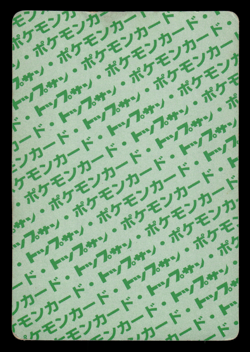 ポケモンカード・
トップサン・ポケモンカード
ポケモンカード・トップサン・
トップサン・ポケモンカード・
ポケモンカード・トップサン・ポケモンカード
トップサン・ポケモンカード・トップサン
ポケモンカード・トップサン・ポケモンカード
トップサン・ポケモンカード・トップサン
ポケモンカード・トップサン・ポケモンカード
トップサン・ポケモンカード・トップサン
ポケモンカード・トップサン・
トップサン・ポケモンカード
ポケモンカード・トップサン